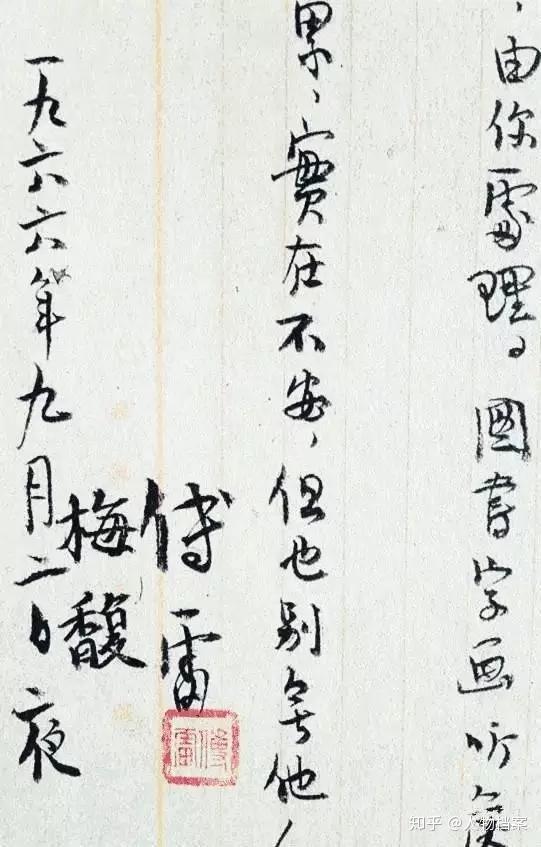 ，由你處理。圖書字画听候
累，實在不安，但也别無他
傅雷
傅雷
梅馥
一九六六年九月二日夜
知乎 @人物档案